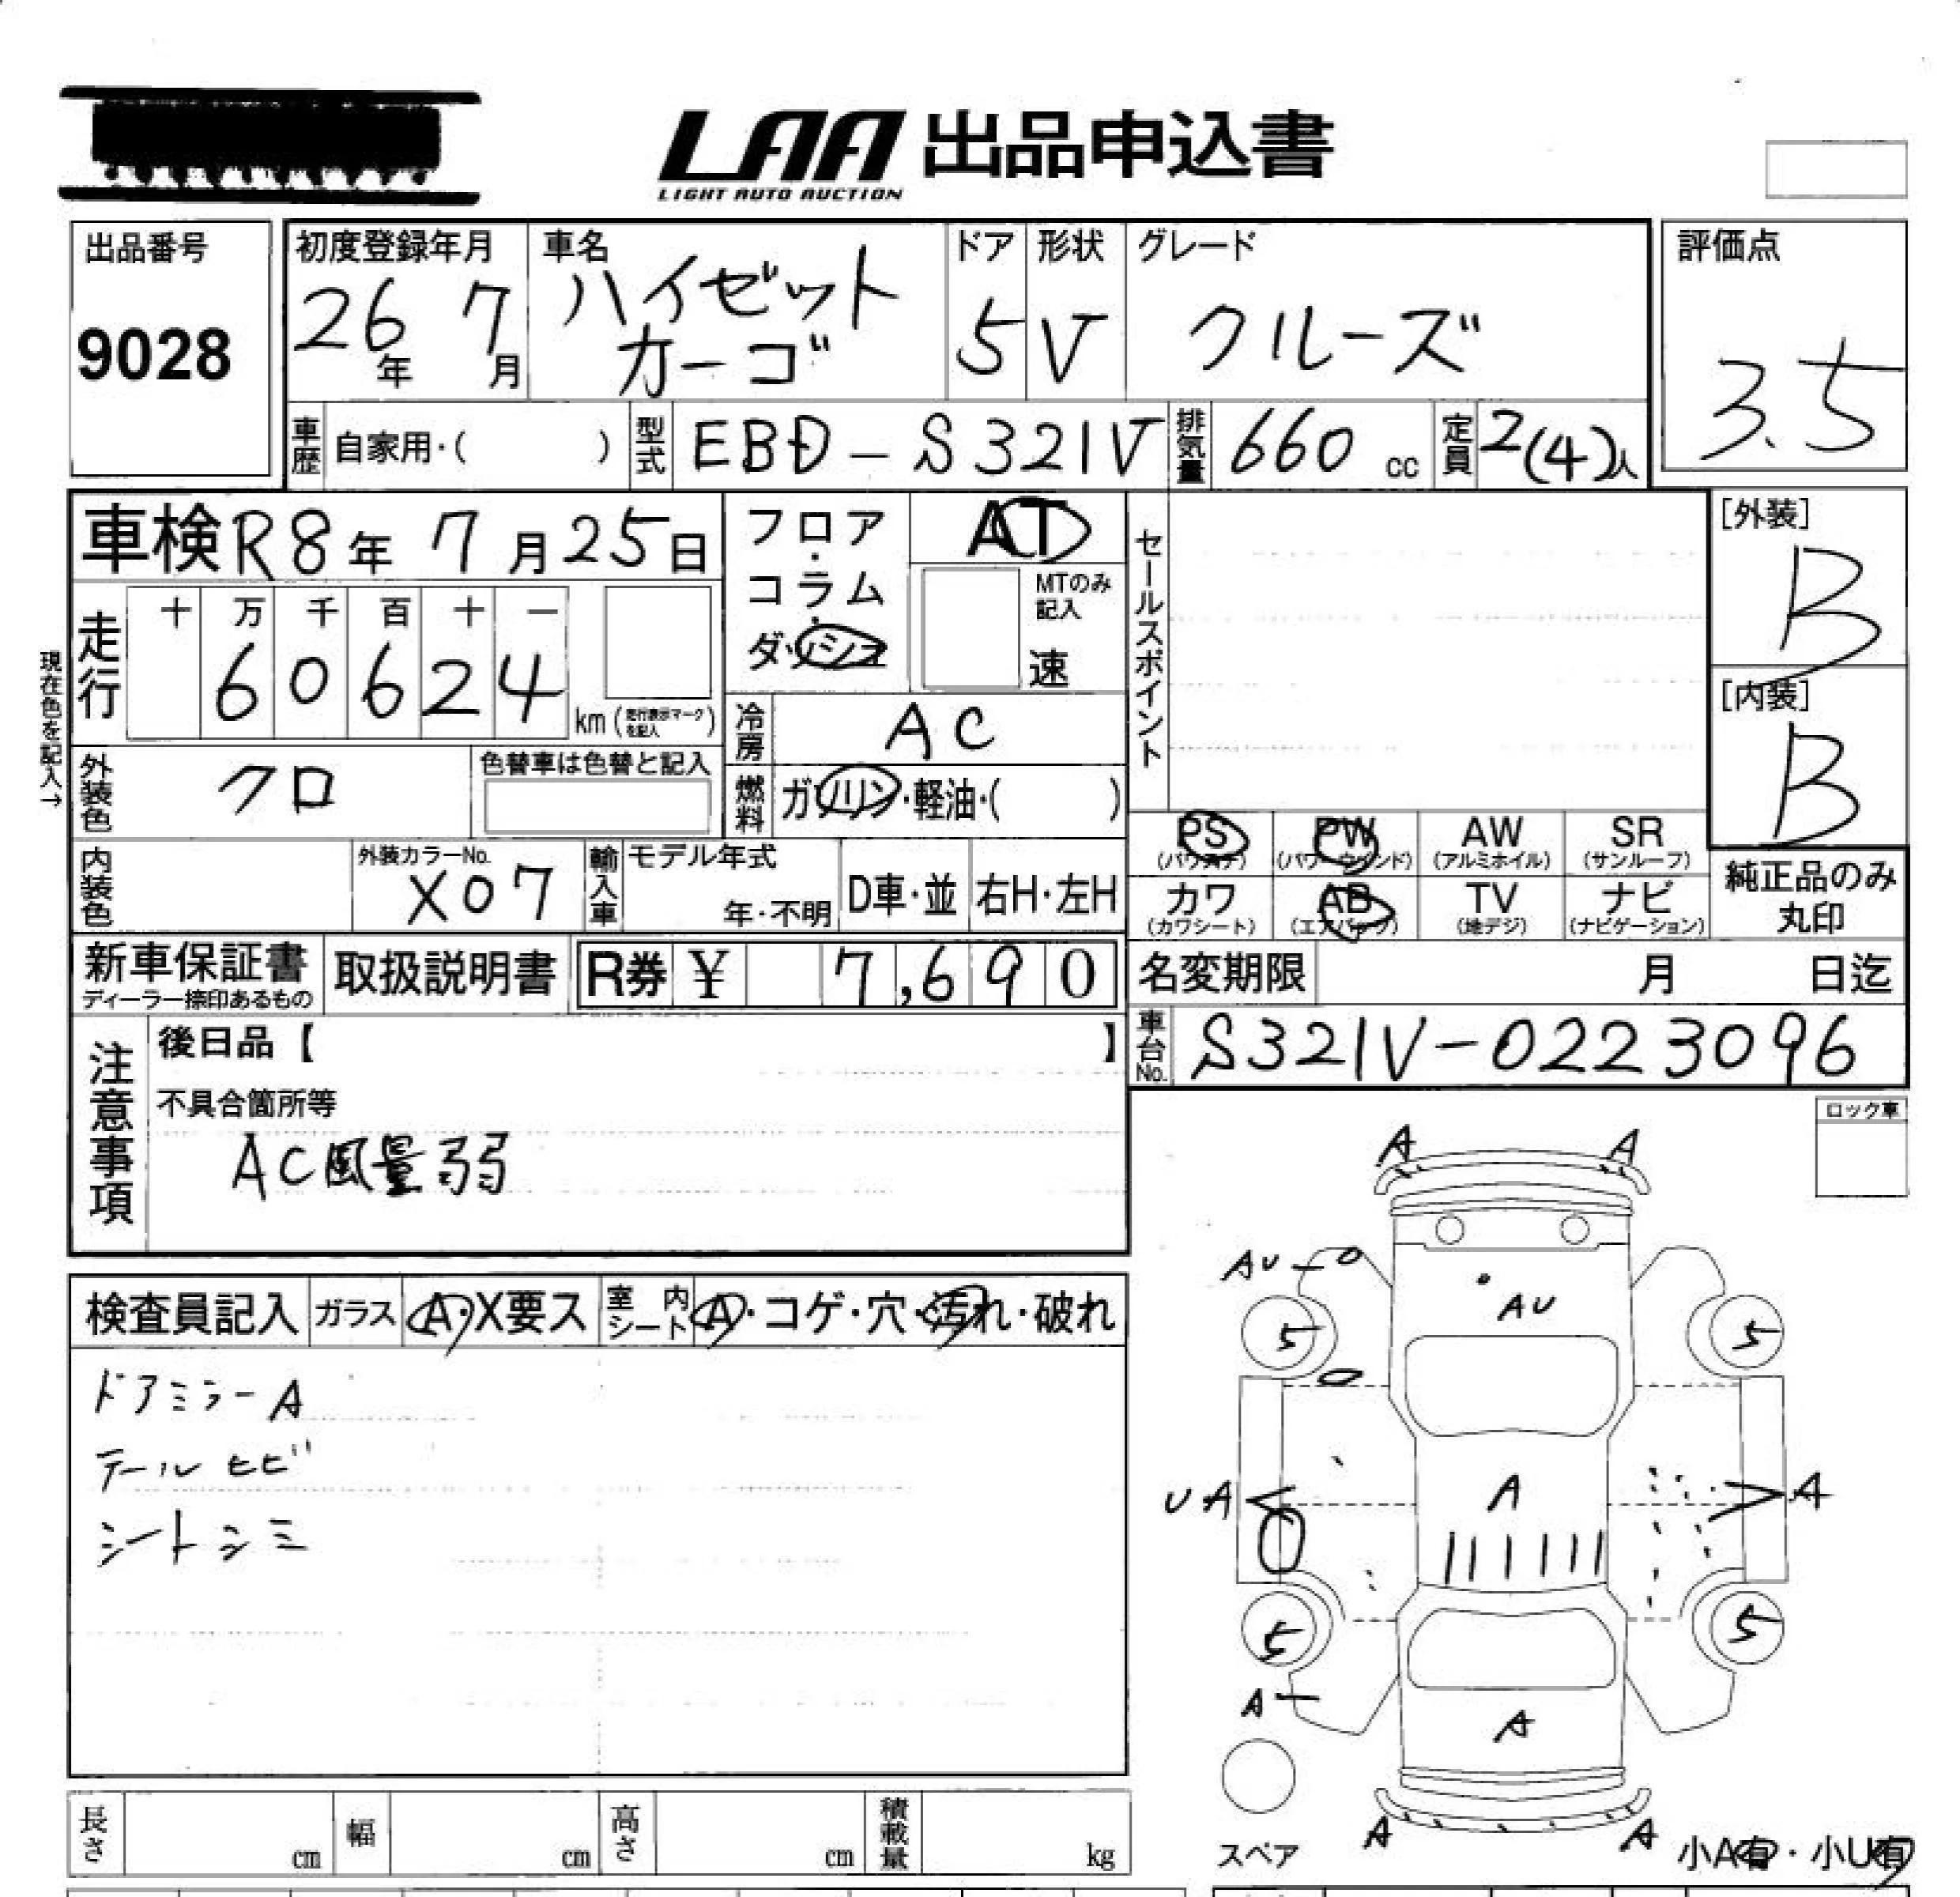 LAA 出品申込書
LIGHT AUTO AUCTION
出品番号
9028
初度登録年月
26年 7月
車名
ハイゼット
カーゴ
ドア
5
形状
V
グレード
クルーズ
評価点
3.5
車歴 自家用・( )
型式 EBD-S321V
排気量 660 cc
定員 2(4)人
車検 R8年 7月25日
フロア・コラム・ダッシュ
AT
MTのみ記入
速
セールスポイント
[外装]
B
[内装]
B
現在色を記入→
走行
十 万 千 百 十 一
6 0 6 2 4
km (走行表示マークを記入)
冷房 AC
外装色 クロ
色替車は色替と記入
燃料 ガソリン・軽油・( )
PS (パワステ)
PW (パワーウインド)
AW (アルミホイル)
SR (サンルーフ)
内装色
外装カラーNo.
X07
輸入車
モデル年式
年・不明
D車・並
右H・左H
カワ (カワシート)
AB (エアバッグ)
TV (地デジ)
ナビ (ナビゲーション)
純正品のみ
丸印
新車保証書
ディーラー捺印あるもの
取扱説明書
R券 ¥ 7,690
名変期限 月 日迄
車台No. S321V-0223096
注意事項
後日品【 】
不具合箇所等
AC風量弱
ロック車
A A
AU
AU
5 5
UA A A
5 5
A
A
A A
スペア
小A有・小U有
検査員記入
ガラス A・X要ス
室内シート A・コゲ・穴・汚れ・破れ
ドアミラーA
テールヒビ
シートシミ
長さ cm
幅 cm
高さ cm
積載量 kg